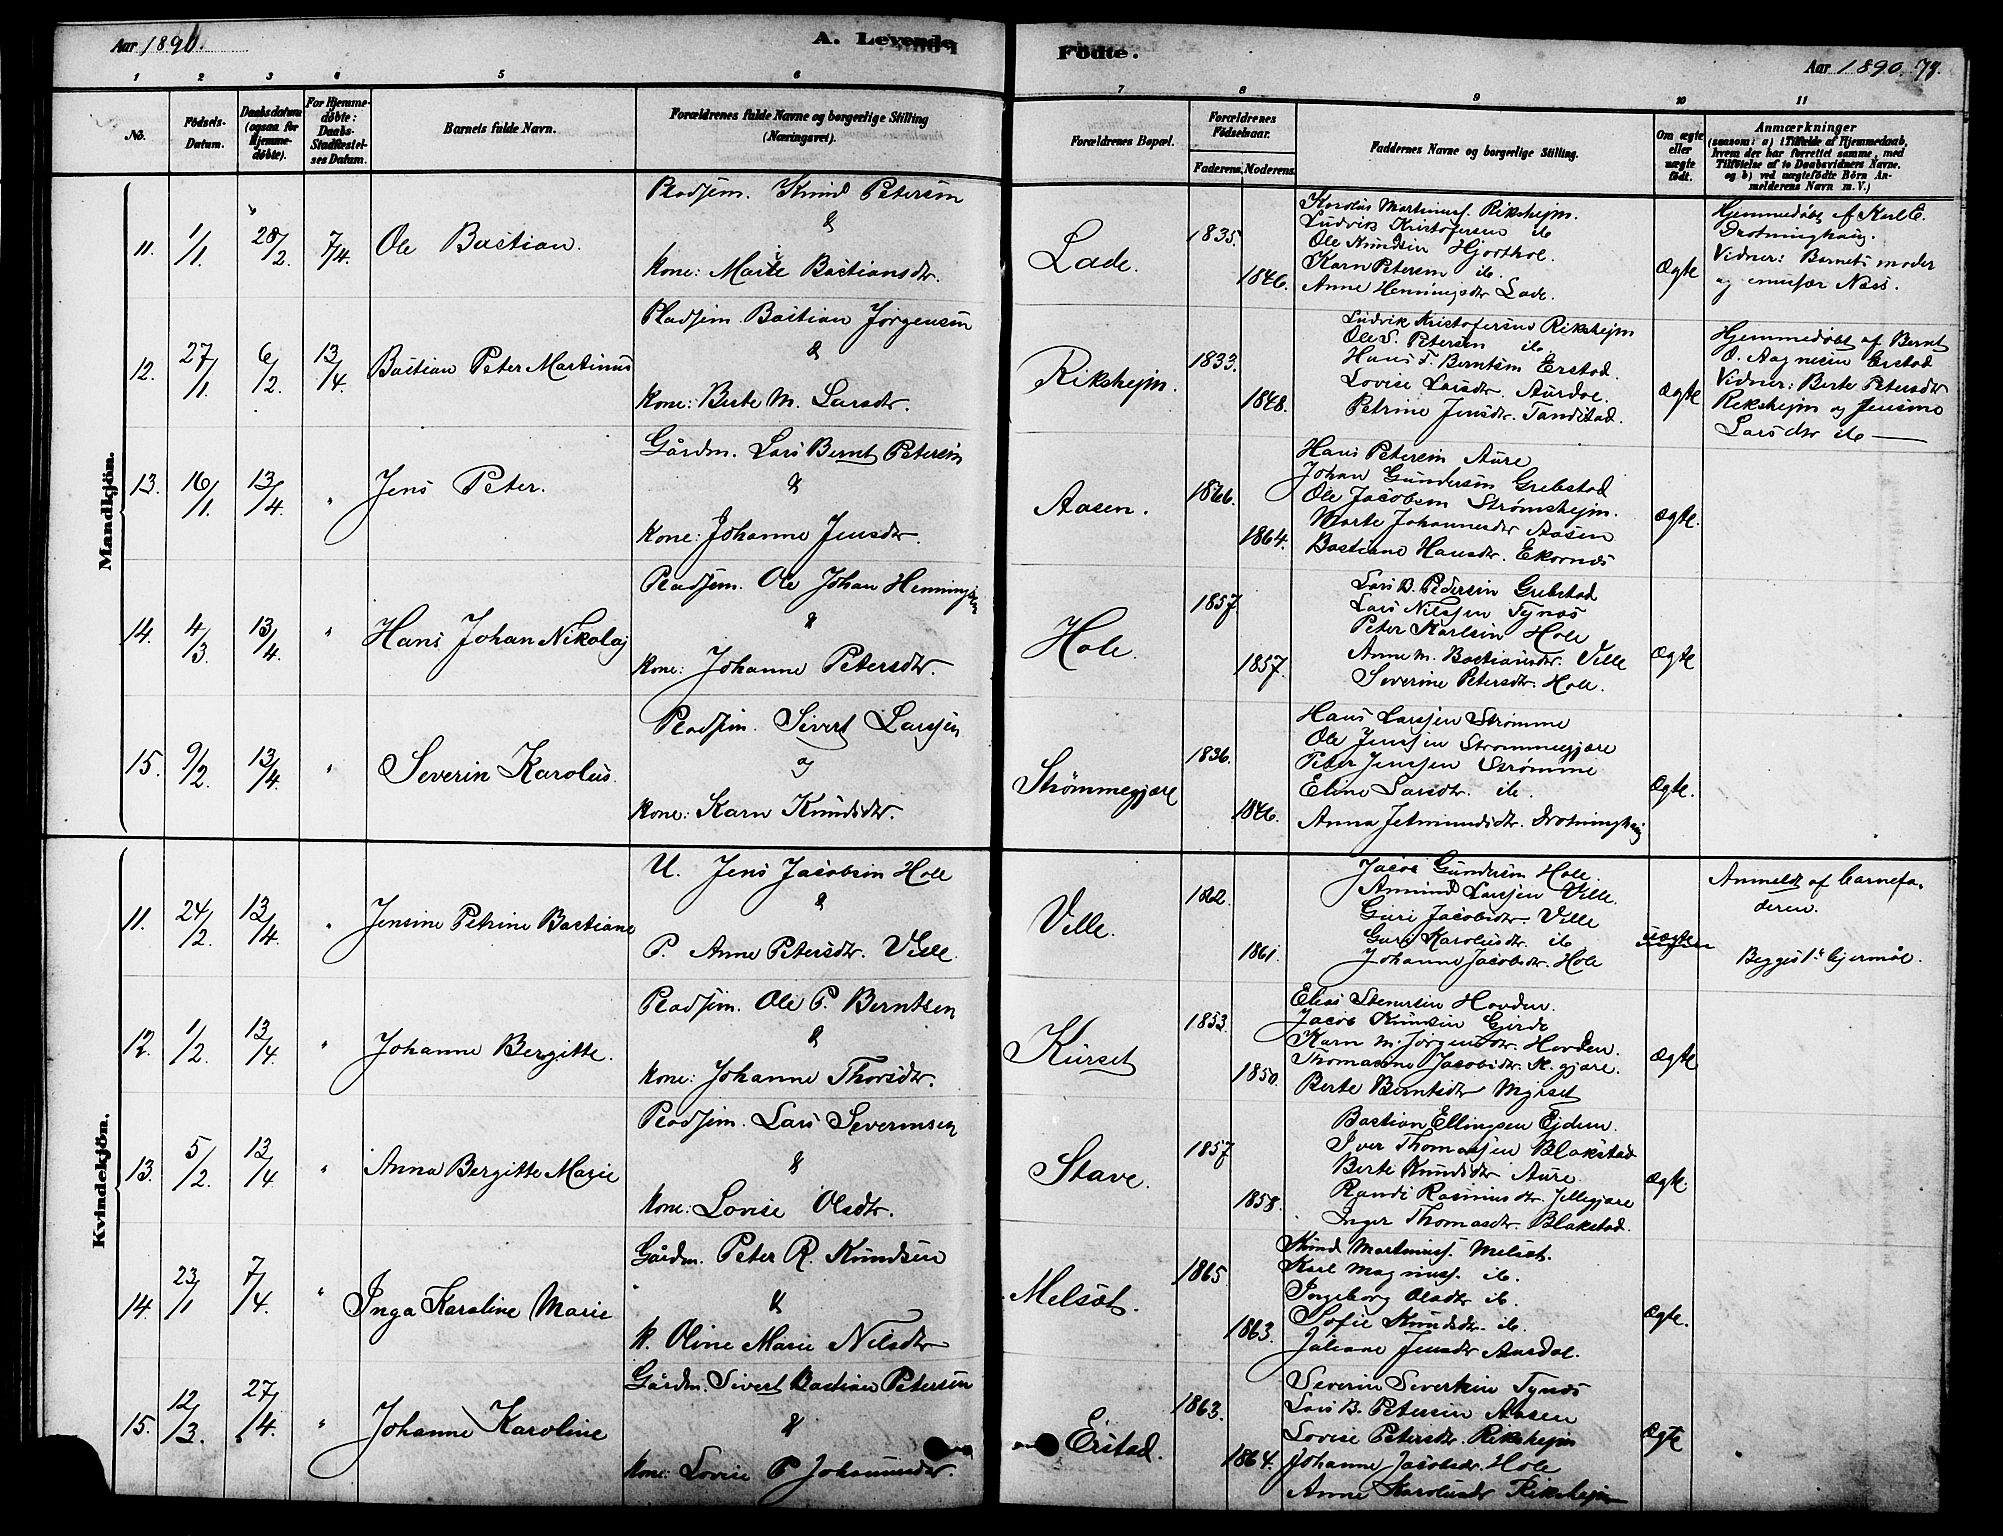 Aar 1890.
A. Levende
Födte.
Aar 1890. 73.
1 2 3 4 5 6
7 8 9 10 11
No.
Födsels-Datum.
Daabsdatum (ogsaa for Hjemmedöbte).
For Hjemmedöbte: Daabs-Stadfæstelses Datum.
Barnets fulde Navn.
Forældrenes fulde Navne og borgerlige Stilling (Næringsvei).
Forældrenes Bopæl.
Forældrenes Födselsaar.
Faderens. Moderens.
Faddernes Navne og borgerlige Stilling.
Om ægte eller uægte födt.
Anmærkninger
(saasom: a) i Tilfælde af Hjemmedaab, hvem der har forrettet samme, med Tilföielse af to Daabsvidners Navne. og b) ved uægtefödte Börn Anmelderens Navn m. V.)
Mandkjön.
11. 1/1. 28/2. 7/4. Ole Bastian.
Pladsem. Knud Petersen
&
Kone: Marte Bastiansdtr.
Lade. 1835. 1846.
Karolus Martinusf. Rikshejm.
Ludvik Kristofersen ib
Ole Knudsen Hjorthol.
Karn Petersen ib.
Anne Henningsdtr Lade.
Ægte
Hjemmedöbt af Karl E.
Drotninghaug.
Vidner: Barnets moder
og
12. 27/1. 6/2. 13/4. Bastian Peter Martinus
Pladsem. Bastian Jörgensen
&
Kone: Berte M. Larsdtr.
Rikshejm. 1833. 1848.
Ludvik Kristofersen Rikshejm
Ole S. Petersen ib
Hans T. Berntsen Erstad.
Lovise Larsdtr. Aurdal.
Petrine Jensdtr. Tandstad.
Ægte
Hjemmedöbt af Bernt
O. Aagnesen Erstad
Vidner: Berte Petersdtr
Rikshejm og Jensine
Larsdtr ib
13. 16/1. 13/4. " Jens Peter.
Gårdm. Lars Bernt Petersen
&
Kone: Johanne Jensdtr.
Aasen. 1866. 1864.
Hans Petersen Aure
Johan Gundersen Grebstad
Ole Jacobsen Strømshejm.
Marte Johannesdtr Aasen
Bastiane Hansdtr. Ekornæs
Ægte.
14. 4/3. 13/4. " Hans Johan Nikolaj
Pladsem. Ole Johan Henningsen
&
Kone: Johanne Petersdtr.
Hole. 1857 1857.
Lars B. Pedersen Grebstad
Lars Nilssen Tynæs
Peter Karlsen Hole
Anne M. Bastiansdtr. Ville
Severine Petersdtr. Hole.
Ægte
15. 9/2. 13/4. " Severin Karolus.
Pladsem. Sivert Larssen
og
Kone: Karn Knudsdtr.
Strømmegjære 1836. 1846.
Hans Larssen Strømme
Ole Jenssen Strømmegjære
Peter Jenssen Strømme
Eline Larsdtr. ib.
Anna Jetmundsdtr. Drotninghaug
Ægte.
Kvindekjön.
11. 24/2. 13/4. " Jensine Petrine Bastiane
U. Jens Jacobsen Hole
&
P. Anne Petersdtr. Ville.
Ville. 1861.
Jacob Gundersen Hole.
Amund Larssen Ville.
Guri Jacobsdtr. Ville
Guri Karolusdtr. ib
Johanne Jacobsdtr. Hole
uægte
Anmeldt af barnefaderen.
Begges 1ste lejermål.
12. 1/2. 13/4. " Johanne Bergitte.
Pladsem. Ole P. Berntsen
&
Kone: Johanne Thorsdtr.
Kurset 1853. 1850.
Elias Stenersen Hovden.
Jacob Knudsen Gjerde
Karn M. Jörgensdtr. Hovden.
Thomasine Jacobsdtr. gjære.
Berte Berntsdtr Myrset
Ægte
13. 5/2. 13/4. " Anna Bergitte Marie
Pladsem. Lars Severinsen
&
Kone: Lovise Olsdtr.
Stave. 1857 1858.
Bastian Ellingsen Ejdem.
Iver Thomassen Blakstad
Berte Knudsdtr Aure
Randi Rasmusdtr. Jellegjære
Inger Thomasdtr. Blakstad.
Ægte.
14. 23/1 7/4. " Inga Karoline Marie
Gårdm. Peter R. Knudsen
&
K. Oline Marie Nilsdtr
Melsæt. 1865 1863.
Knud Martinusf. Melsæt.
Karl Magnusf. ib.
Ingeborg Olsdtr ib
Sofie Knudsdtr. ib.
Juliane Jensdtr Aurdal.
Ægte.
15. 12/3. 27/4. " Johanne Karoline
Gårdm. Sivert Bastian Petersen
&
Kone: Lovise P. Johannesdtr.
Erstad. 1863. 1864.
Severin Severtsen Tynæs
Lars B. Petersen Aasen
Lovise Petersdtr. Rikshejm
Johanne Jacobsdtr. Hole
Anne Karolusdtr Rikshejm
Ægte